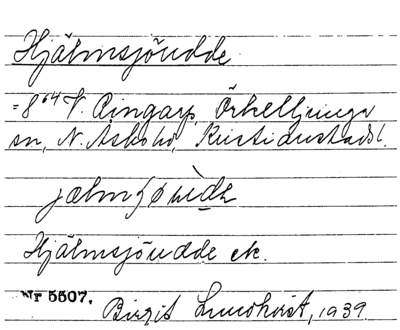 Hjälmsjöudde
= 8⁶⁴ V. Ringarp, Örkelljunga
sn, N. Åsbo hd, Kristianstads l.
Hjälmsjöudde ek.
Nr 5507.
Birgit Lundkvist, 1939.